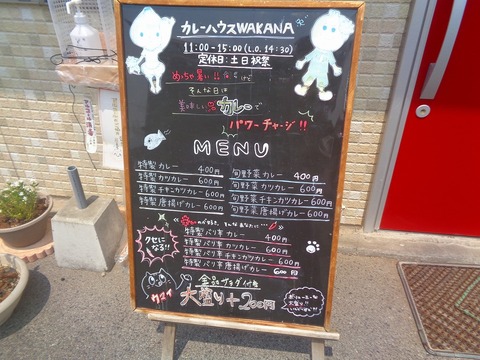 カレーハウスWAKANA
11:00-15:00(L.O.14:30)
定休日:土日祝祭
めっちゃ暑い!!けど
そんな日は
美味しいカレーで
パワーチャージ!!
MENU
特製カレー 400円
特製カツカレー 600円
特製チキンカツカレー 600円
特製唐揚げカレー 600円
旬野菜カレー 400円
旬野菜カツカレー 600円
旬野菜チキンカツカレー 600円
旬野菜唐揚げカレー 600円
クセになる!!
特製バリ辛カレー 400円
特製バリ辛カツカレー 600円
特製バリ辛チキンカツカレー 600円
特製バリ辛唐揚げカレー 600円
全品サラダ付き
大盛り+200円